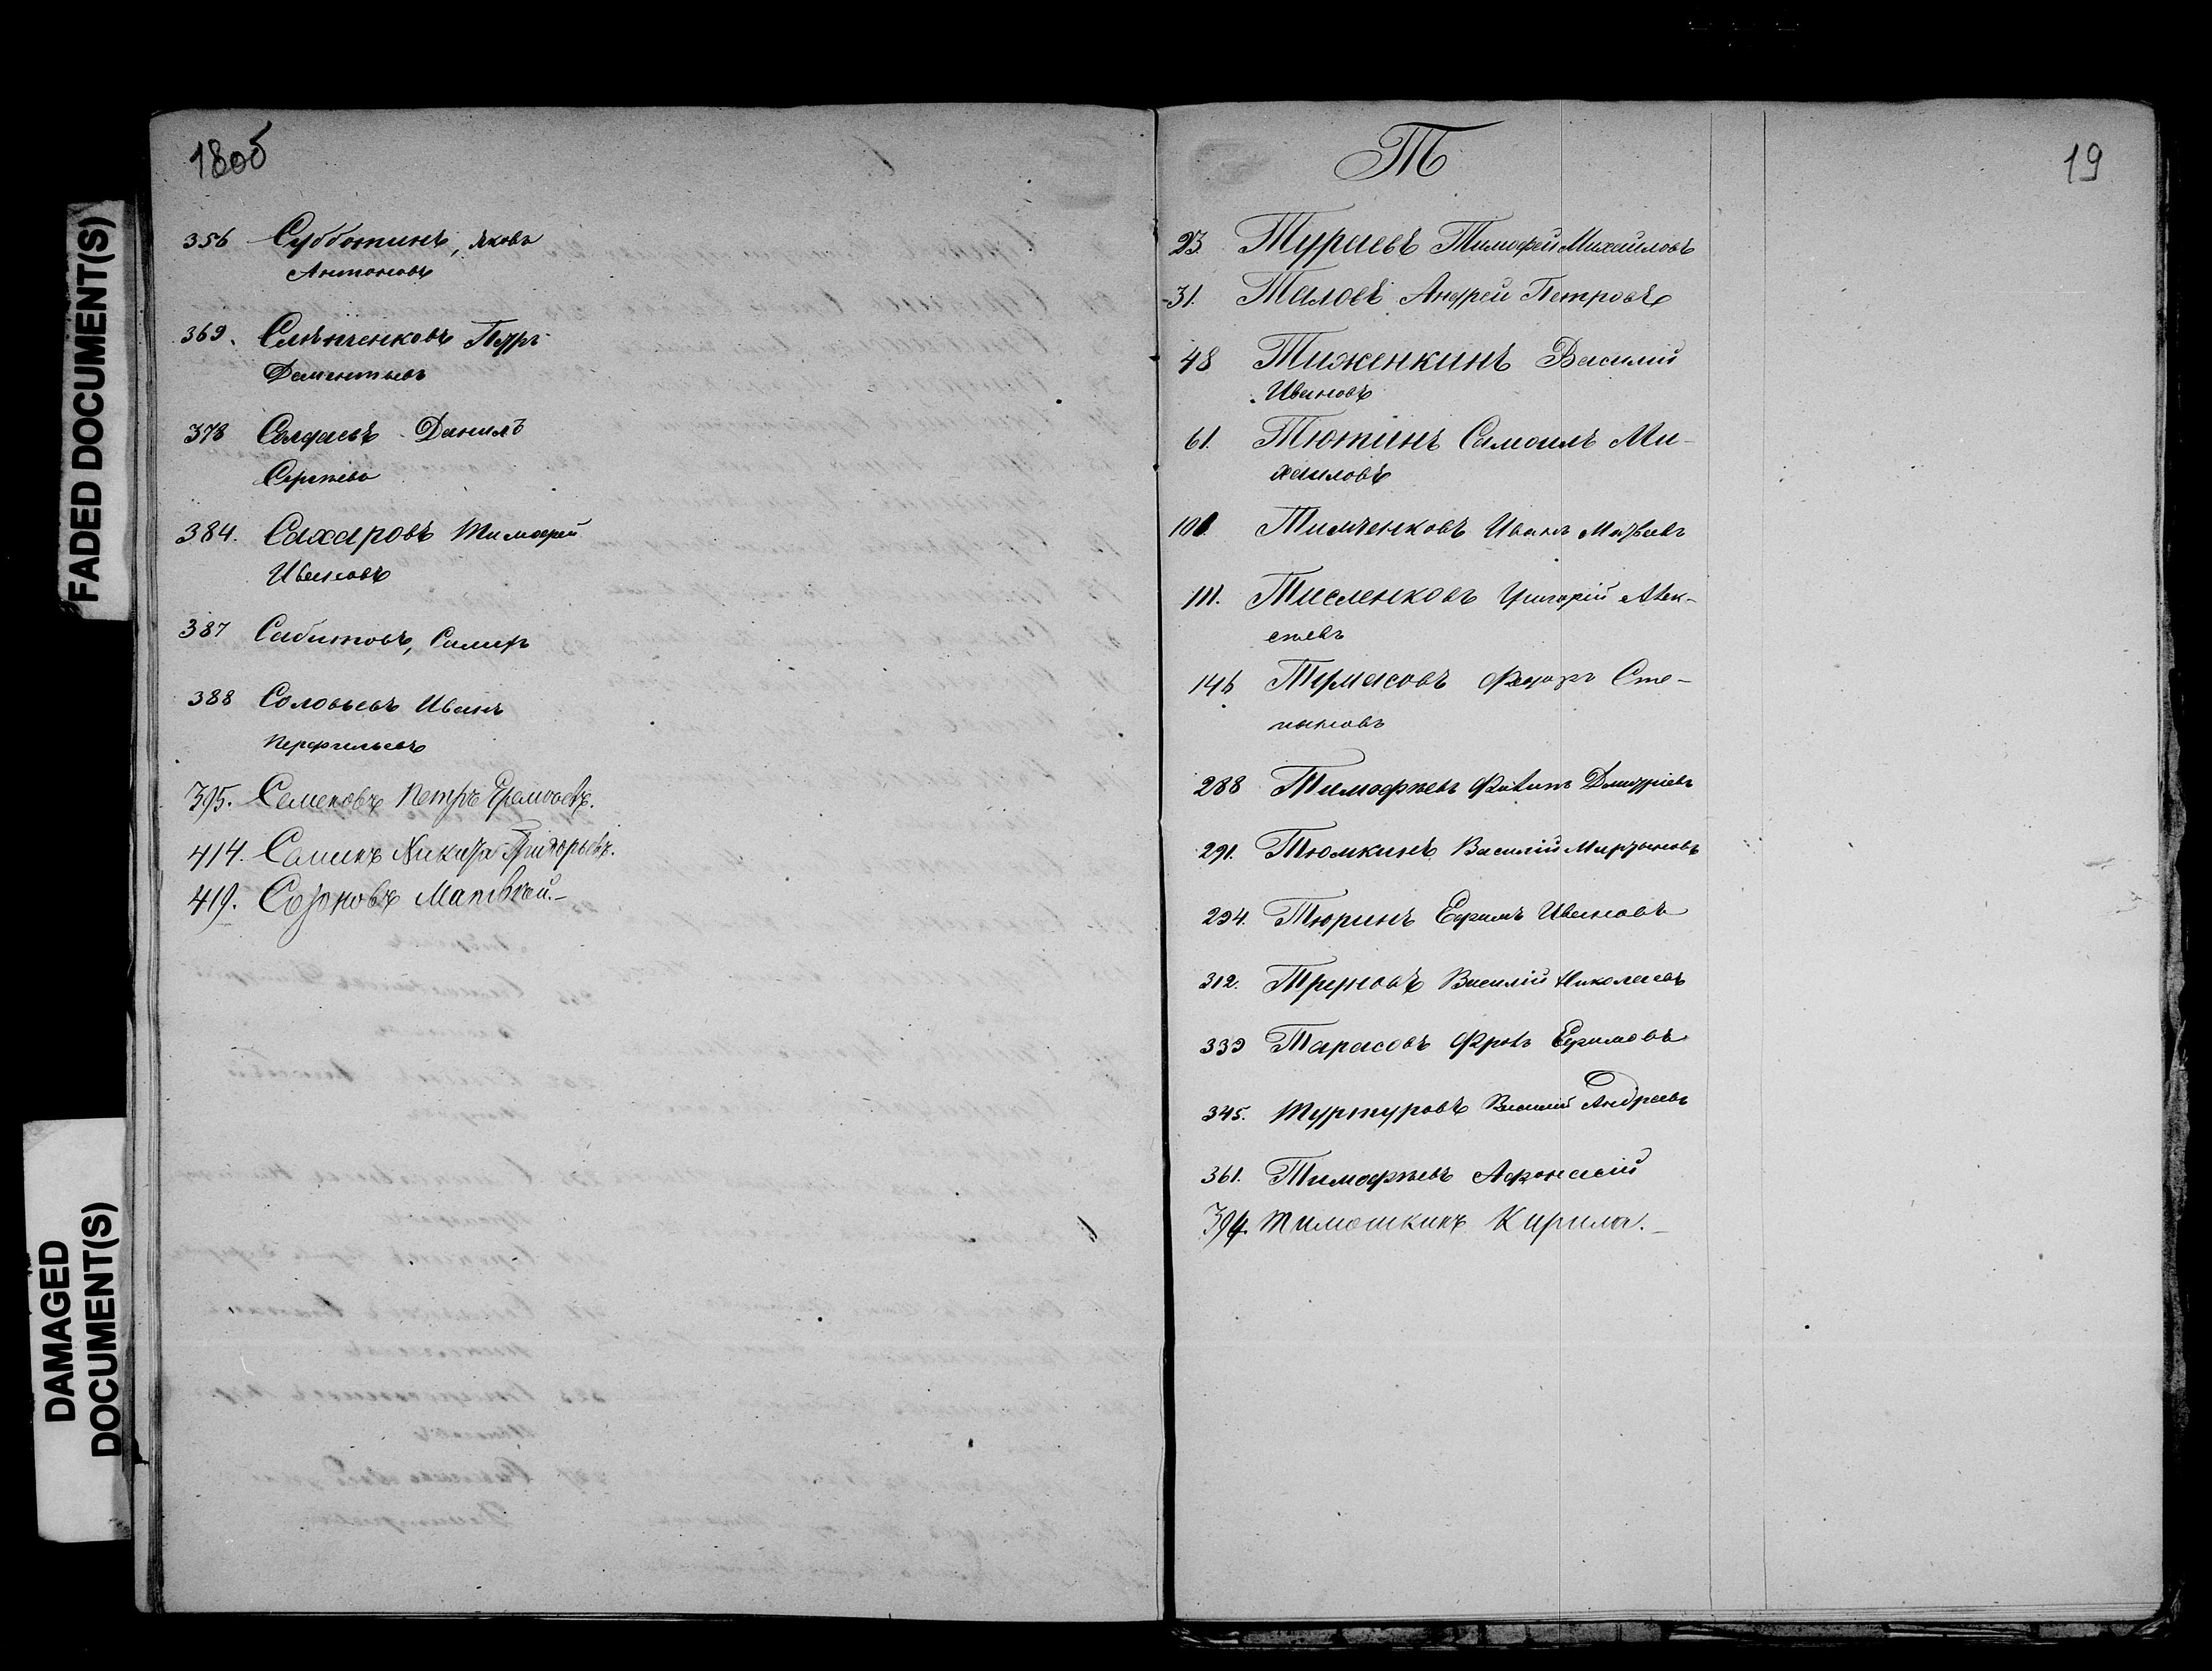 FADED DOCUMENT(S)
DAMAGED
DOCUMENT(S)
18об
356 Субботинъ, Яковъ
Антоновъ
369. Слѣпченковъ Петръ
Дементьевъ
378 Солдаевъ Данилъ
Сергѣевъ
384. Сахаровъ Тимофей
Ивановъ
387 Сабитовъ,
388 Соловьевъ Иванъ
Перфильевъ
395. Семеновъ Петръ Ермолаевъ.
414. Саминъ Никита Григорьевъ.
419. Созоновъ Матвѣй.-
Т
19
23. Тураевъ Тимофей Михайловъ
31. Таловъ Андрей Петровъ
48 Тиженкинъ Василий
Ивановъ
61. Тютинъ Самоилъ Ми-
хаиловъ
Тимченковъ Иванъ Матвѣевъ
111. Тисленковъ Григорій Алек-
сѣевъ
146 Турмасовъ Федоръ Сте-
пановъ
288 Тимофѣевъ Филипъ Дмитріевъ
291. Тюмкинъ Василій Мартыновъ
294. Тюринъ Ефимъ Ивановъ
312. Труновъ Василій Николаевъ
339 Тарасовъ Фролъ Ефимовъ
345. Туртуровъ Василий Андреевъ
361. Тимофѣевъ Афонасій
394. Тимошкинъ Кирила.-